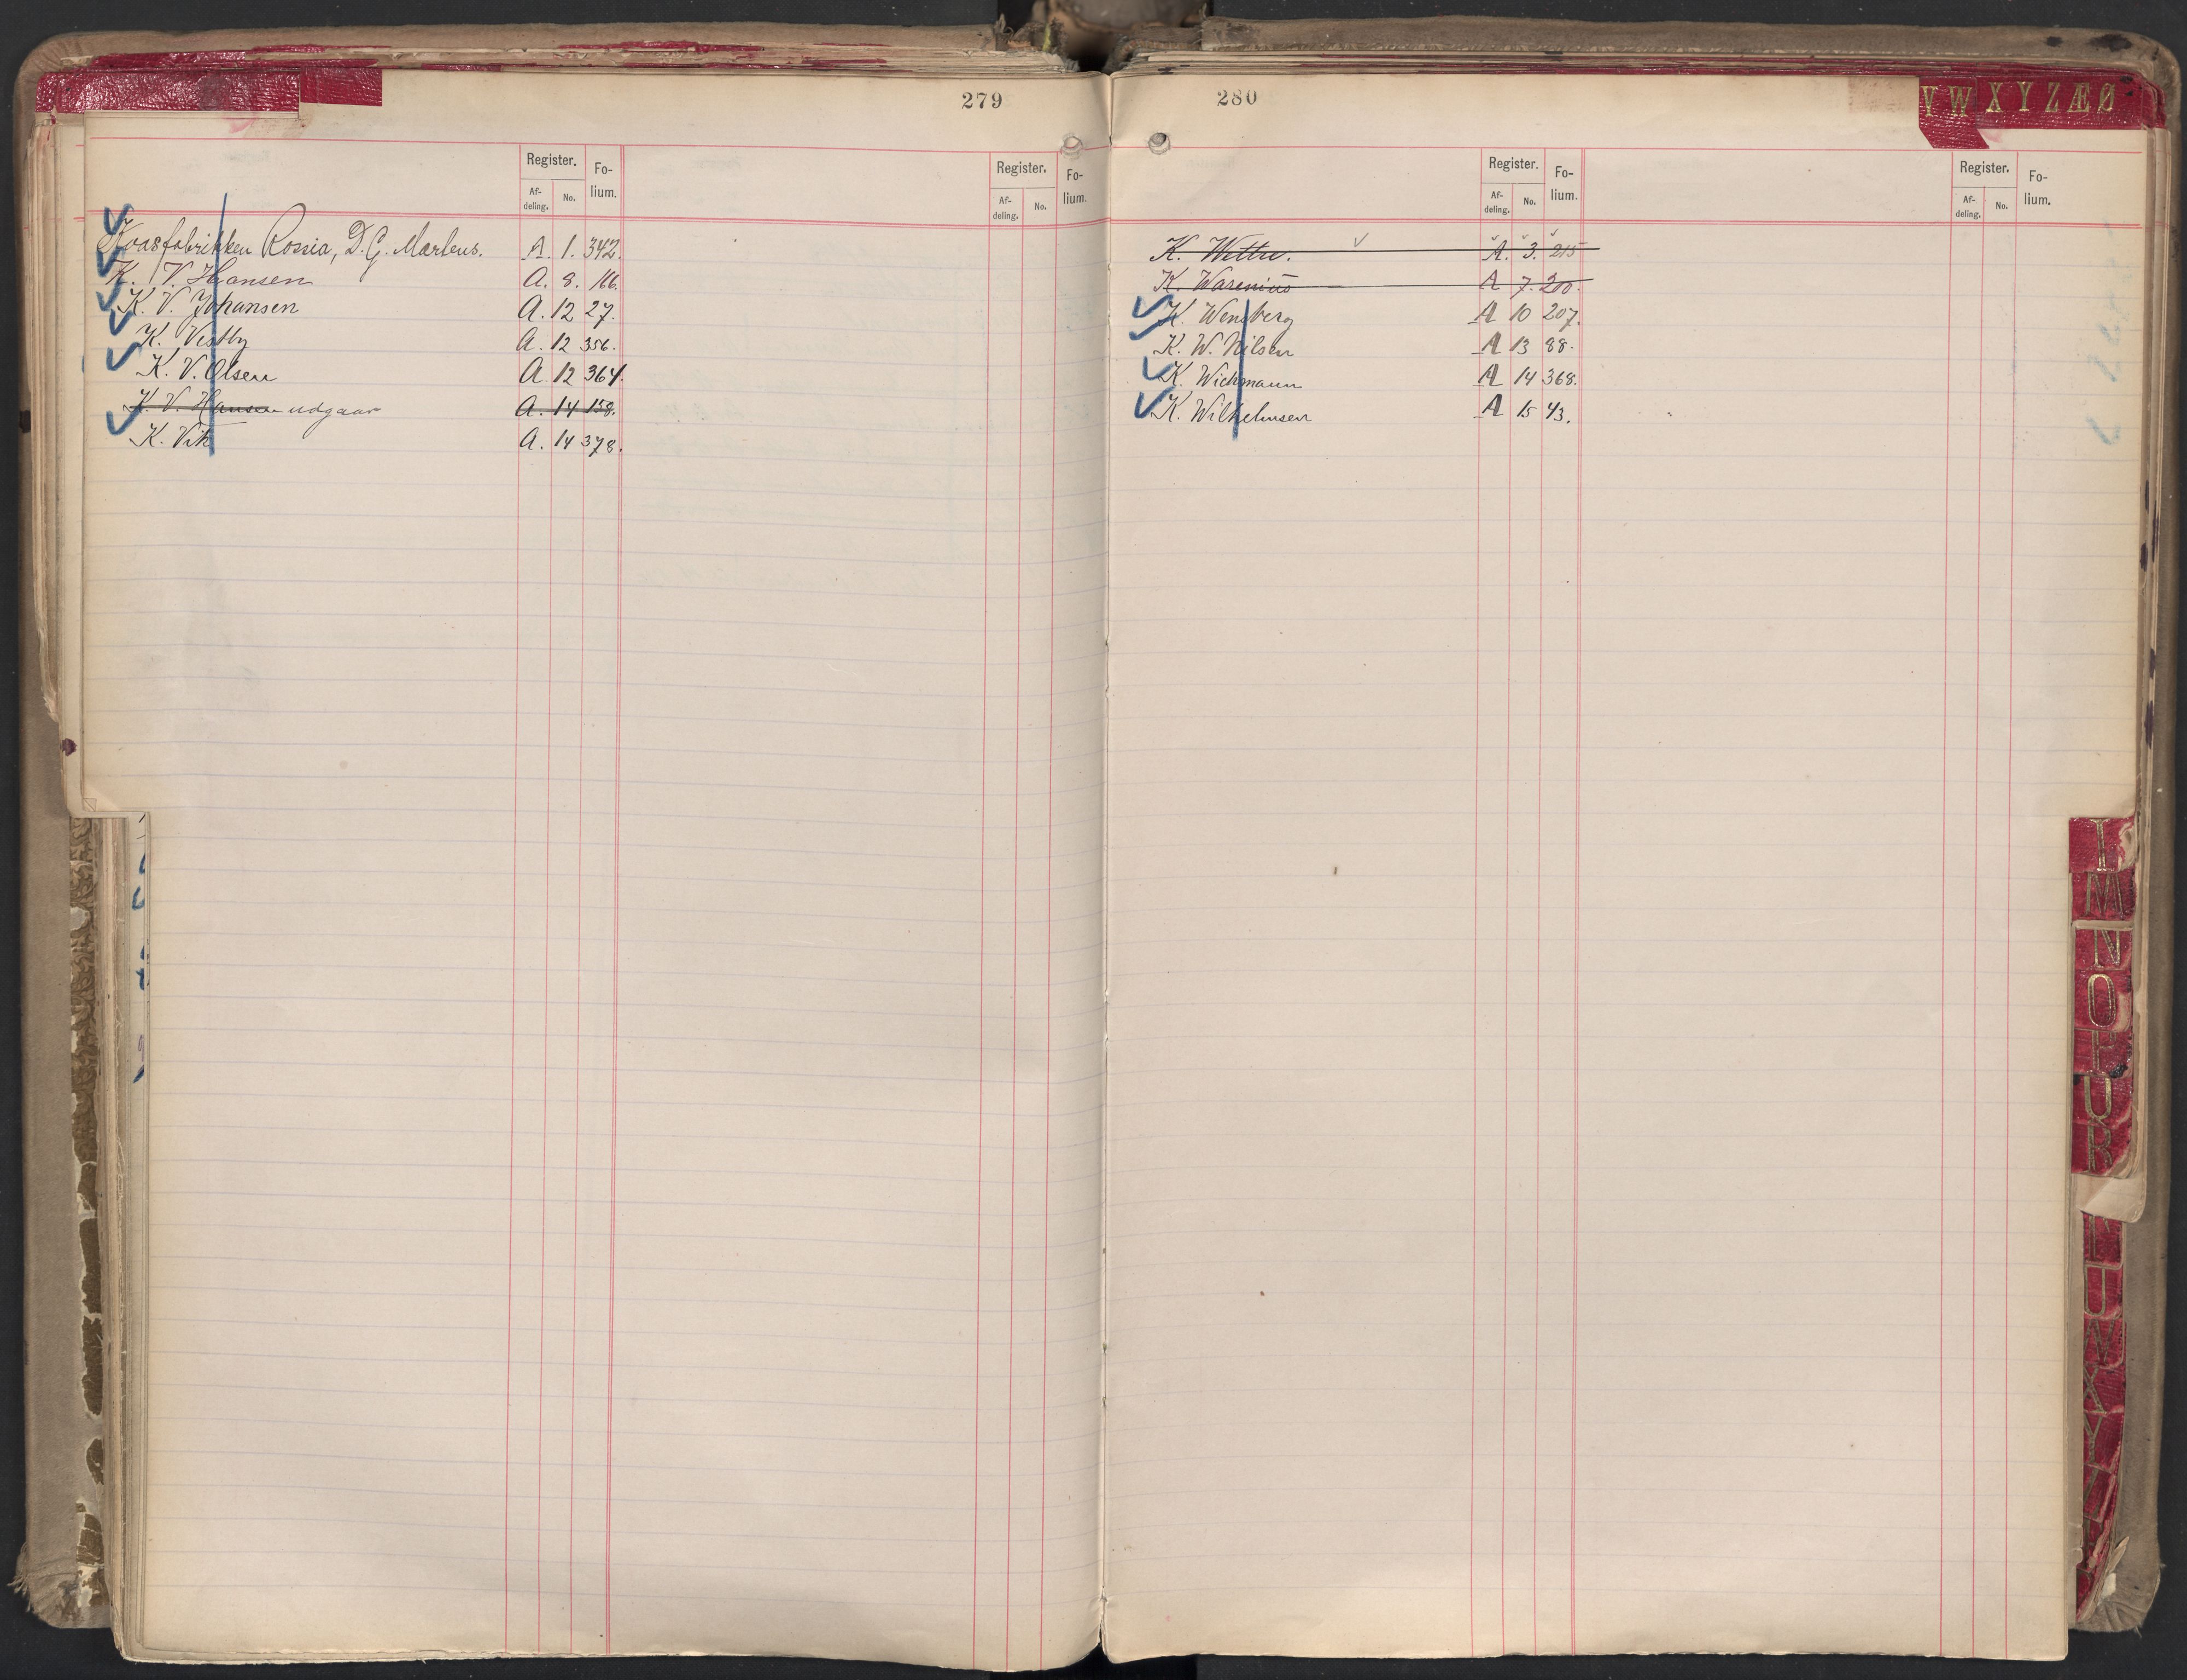 279
Register. Fo-
Af- No. lium.
deling.
Register. Fo-
Af- No. lium.
deling.
Rossia, D. G. Martens. A. 1. 342.
K. V. Hansen A. 8. 166.
K. V. Johansen A. 12 27.
K. Vestby A. 12 356.
K. V. Olsen A. 12 364.
K. V. Hansen udgaar A. 14 158.
K. Vik A. 14 378.
280
V W X Y Z Æ Ø
Register. Fo-
Af- No. lium.
deling.
Register. Fo-
Af- No. lium.
deling.
K. Wettre. A. 3. 215
K. Warenius A 7. 200.
K. Wensberg A 10 207.
K. W. Nilsen A 13 88.
K. Wichmann A 14 368.
K. Wilhelmsen A 15 43.
M
N
O